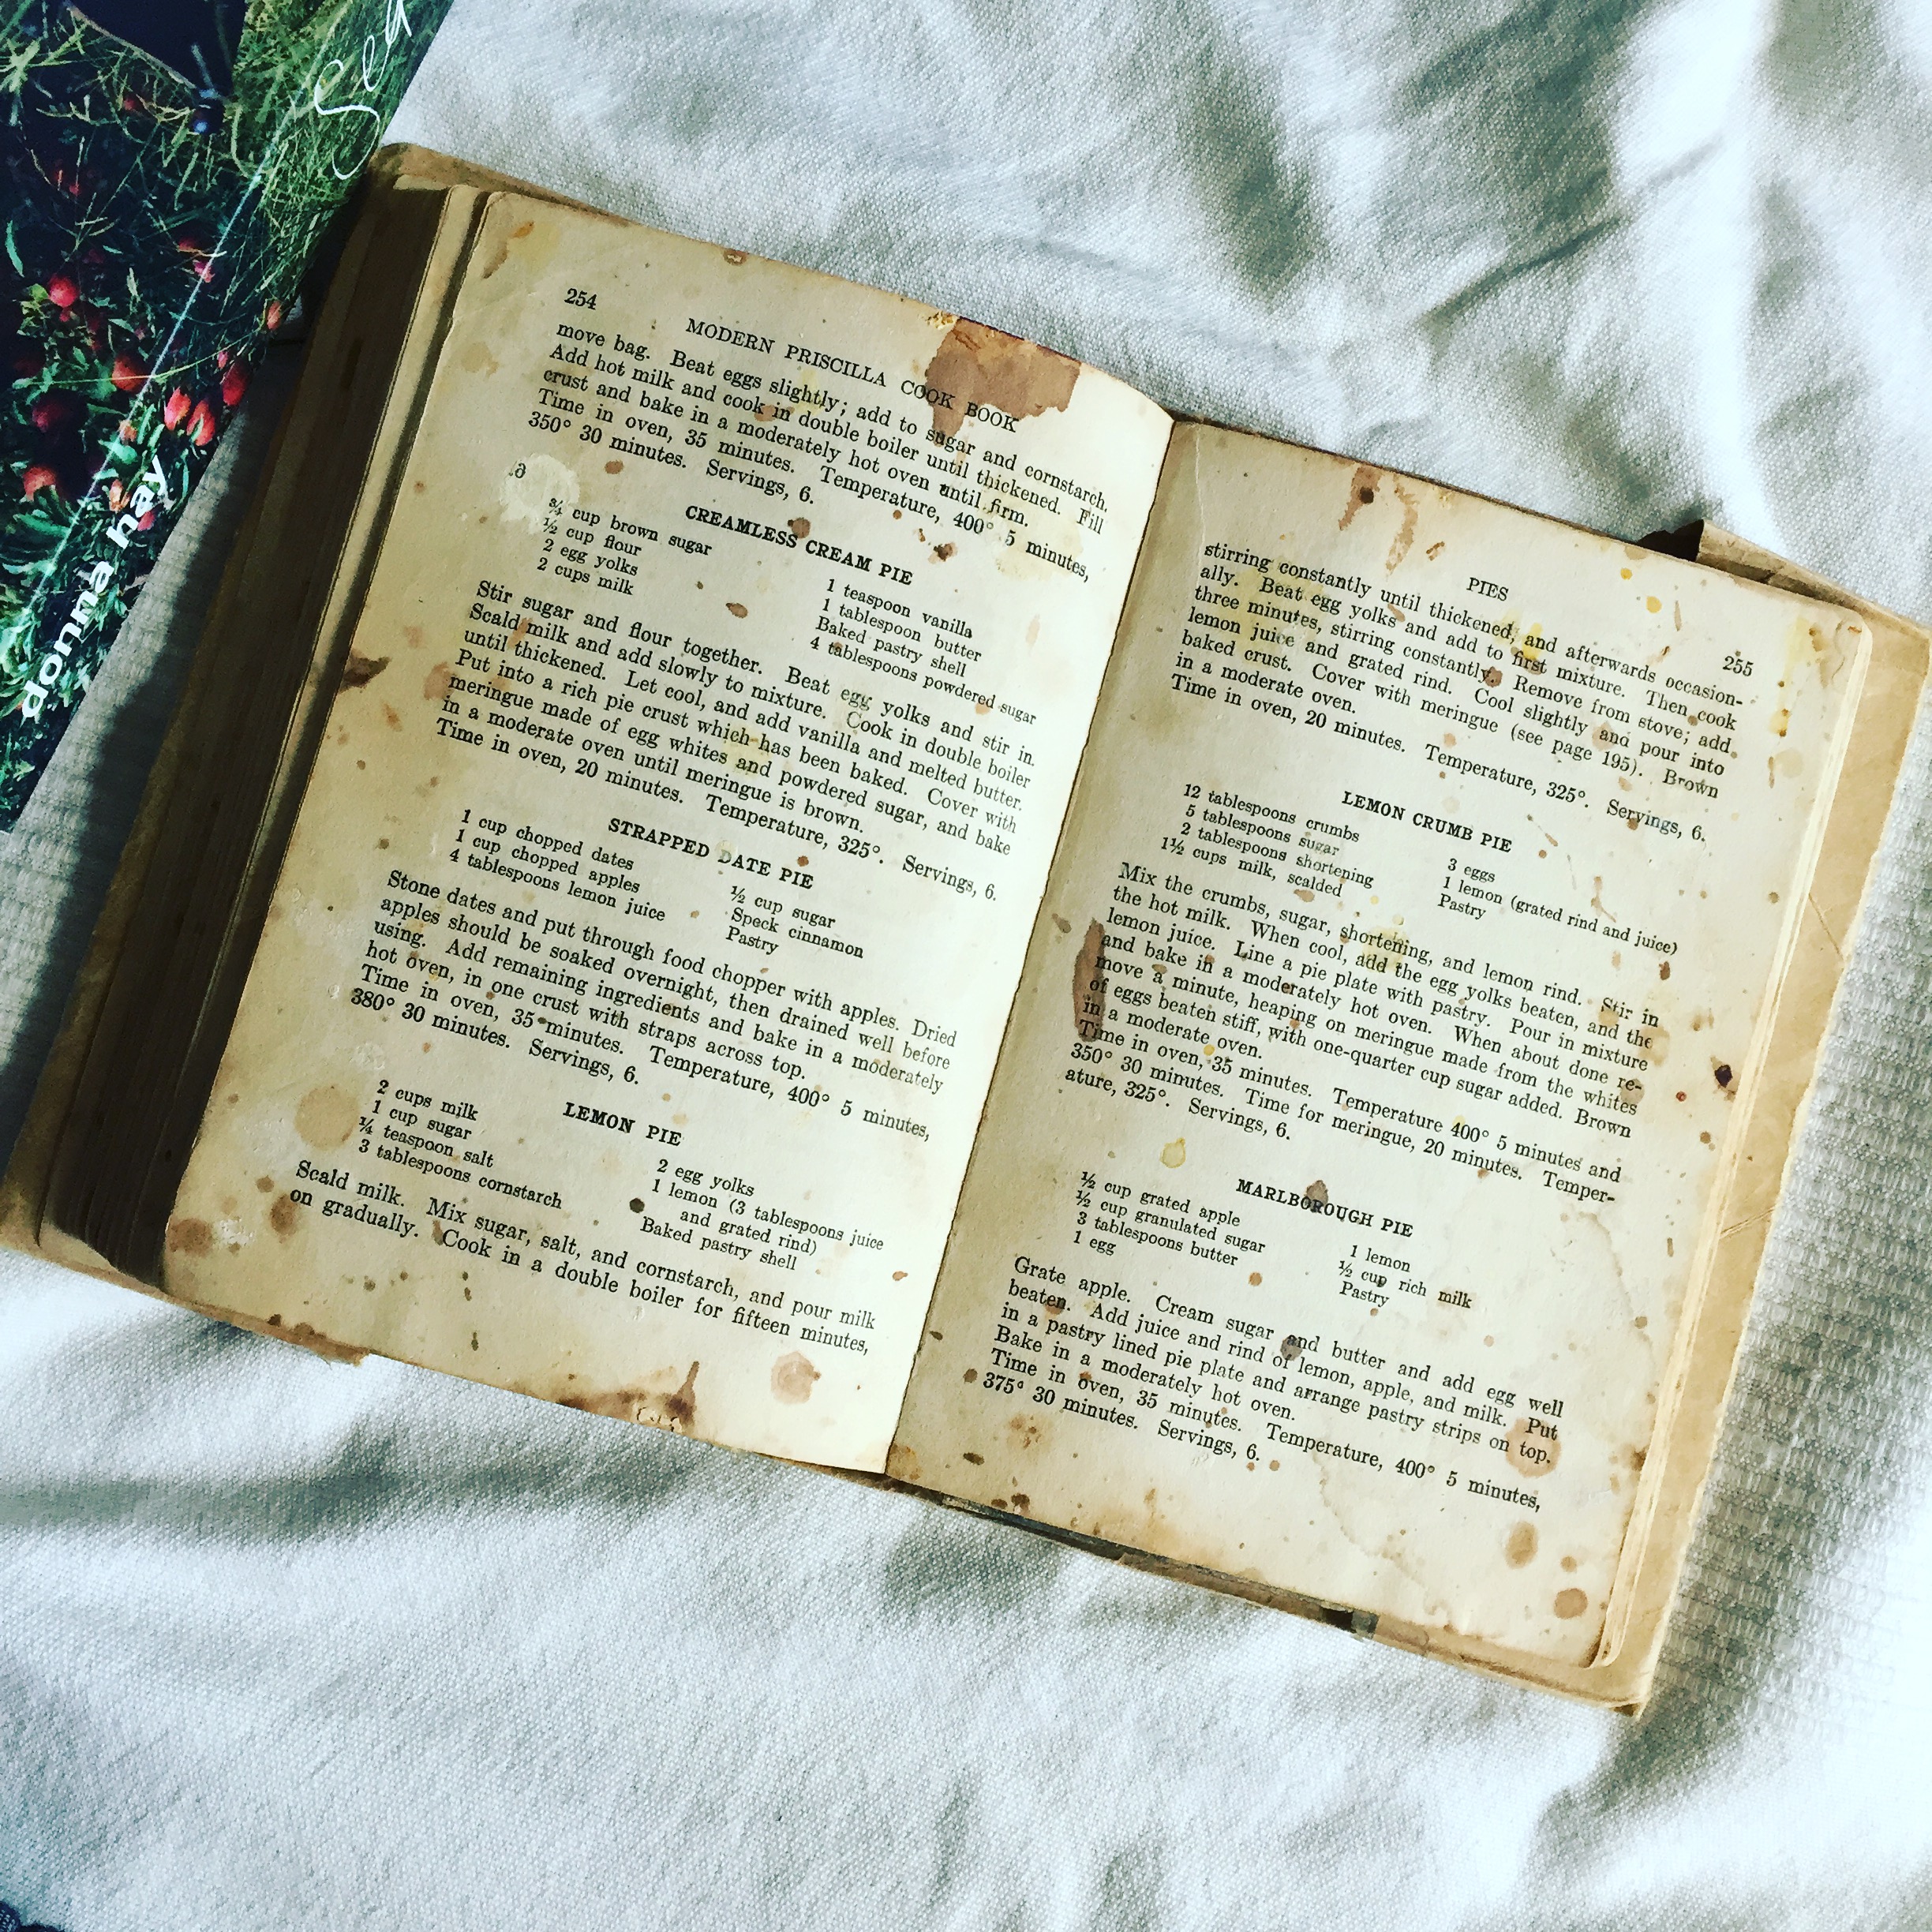 Sea
donna hay
254
MODERN PRISCILLA COOK BOOK
move bag. Beat eggs slightly; add to sugar and cornstarch.
Add hot milk and cook in double boiler until thickened. Fill
crust and bake in a moderately hot oven until firm.
Time in oven, 35 minutes. Temperature, 400° 5 minutes,
350° 30 minutes. Servings, 6.
CREAMLESS CREAM PIE
¾ cup brown sugar
½ cup flour
2 egg yolks
2 cups milk
1 teaspoon vanilla
1 tablespoon butter
Baked pastry shell
4 tablespoons powdered sugar
Stir sugar and flour together. Beat egg yolks and stir in.
Scald milk and add slowly to mixture. Cook in double boiler
until thickened. Let cool, and add vanilla and melted butter.
Put into a rich pie crust which has been baked. Cover with
meringue made of egg whites and powdered sugar, and bake
in a moderate oven until meringue is brown.
Time in oven, 20 minutes. Temperature, 325°. Servings, 6.
STRAPPED DATE PIE
1 cup chopped dates
1 cup chopped apples
4 tablespoons lemon juice
½ cup sugar
Speck cinnamon
Pastry
Stone dates and put through food chopper with apples. Dried
apples should be soaked overnight, then drained well before
using. Add remaining ingredients and bake in a moderately
hot oven, in one crust with straps across top.
Time in oven, 35 minutes. Temperature, 400° 5 minutes,
380° 30 minutes. Servings, 6.
LEMON PIE
2 cups milk
1 cup sugar
¼ teaspoon salt
3 tablespoons cornstarch
2 egg yolks
1 lemon (3 tablespoons juice
and grated rind)
Baked pastry shell
Scald milk. Mix sugar, salt, and cornstarch, and pour milk
on gradually. Cook in a double boiler for fifteen minutes,
PIES
255
stirring constantly until thickened, and afterwards occasion-
ally. Beat egg yolks and add to first mixture. Then cook
three minutes, stirring constantly. Remove from stove; add
lemon juice and grated rind. Cool slightly and pour into
baked crust. Cover with meringue (see page 195). Brown
in a moderate oven.
Time in oven, 20 minutes. Temperature, 325°. Servings, 6.
LEMON CRUMB PIE
12 tablespoons crumbs
5 tablespoons sugar
2 tablespoons shortening
1½ cups milk, scalded
3 eggs
1 lemon (grated rind and juice)
Pastry
Mix the crumbs, sugar, shortening, and lemon rind. Stir in
the hot milk. When cool, add the egg yolks beaten, and the
lemon juice. Line a pie plate with pastry. Pour in mixture
and bake in a moderately hot oven. When about done re-
move a minute, heaping on meringue made from the whites
of eggs beaten stiff, with one-quarter cup sugar added. Brown
in a moderate oven.
Time in oven, 35 minutes. Temperature 400° 5 minutes and
350° 30 minutes. Time for meringue, 20 minutes. Temper-
ature, 325°. Servings, 6.
MARLBOROUGH PIE
½ cup grated apple
½ cup granulated sugar
3 tablespoons butter
1 egg
1 lemon
½ cup rich milk
Pastry
Grate apple. Cream sugar and butter and add egg well
beaten. Add juice and rind of lemon, apple, and milk. Put
in a pastry lined pie plate and arrange pastry strips on top.
Bake in a moderately hot oven.
Time in oven, 35 minutes. Temperature, 400° 5 minutes,
375° 30 minutes. Servings, 6.